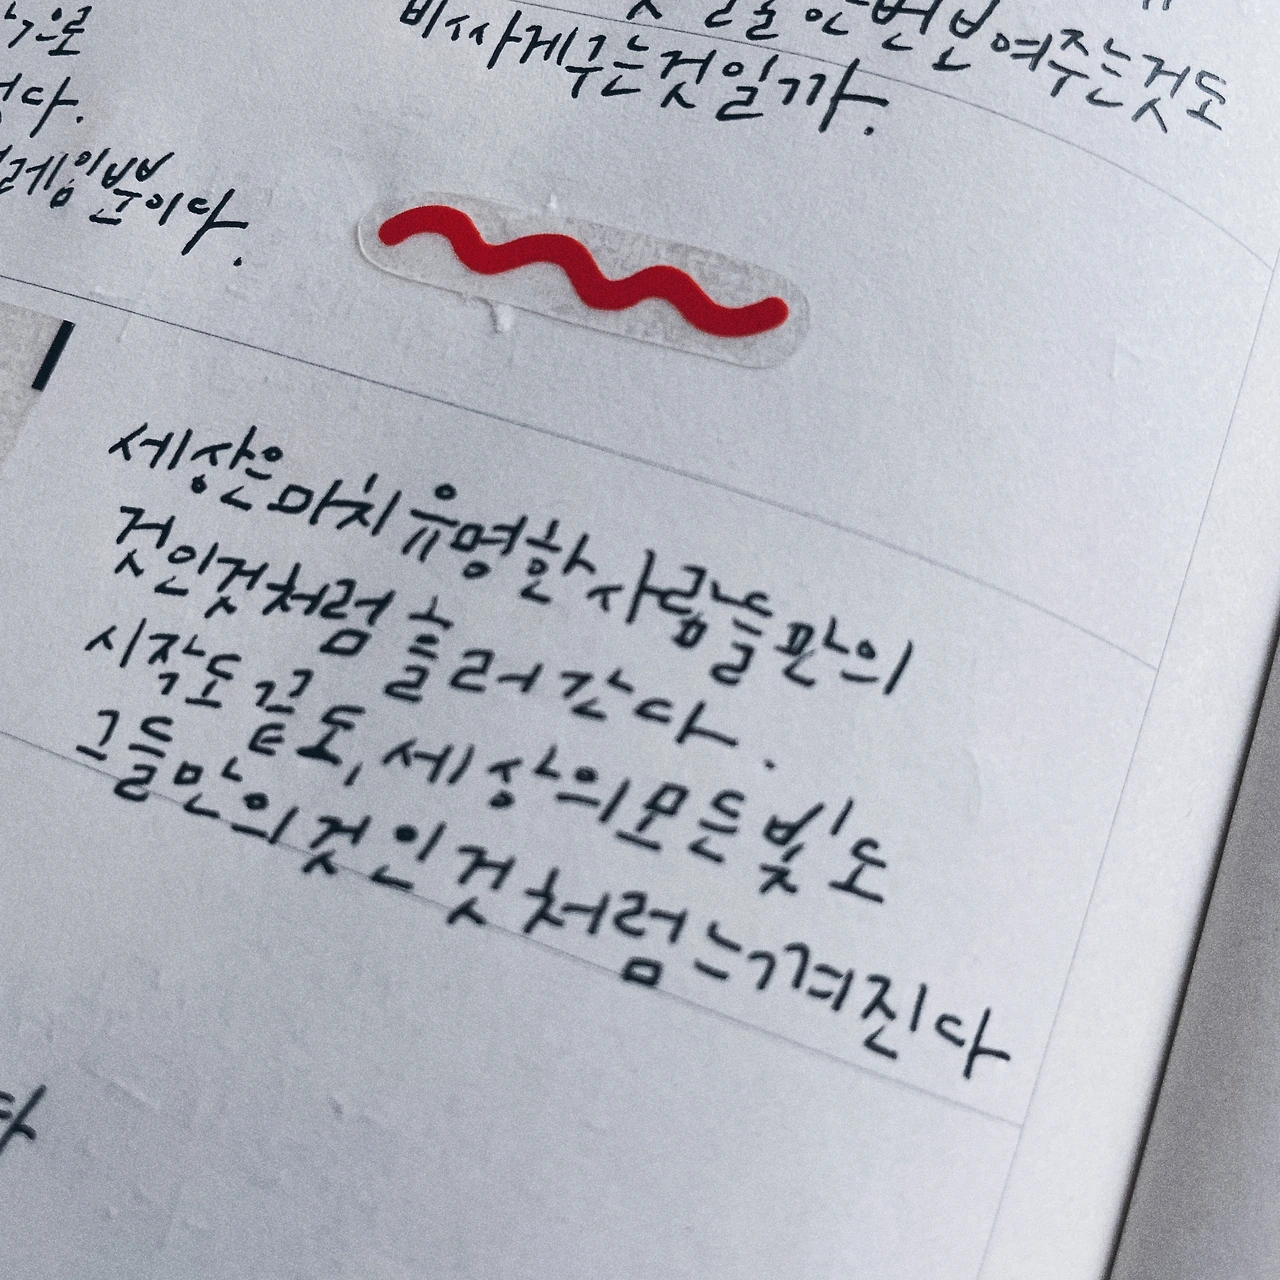 얼굴 한번 보여주는것도
비싸게 구는것일까.
으로
다.
레임뿐이다.
세상은 마치 유명한 사람들만의
것인것처럼 흘러간다.
시작도 끝도, 세상의 모든 빛도
그들만의 것인것처럼 느껴진다
다